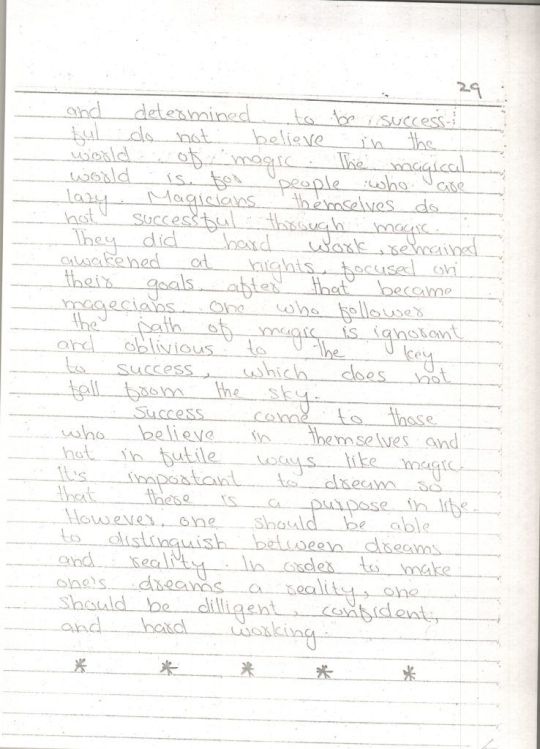 29
and determined to be success-
ful do not believe in the
world of magic. The magical
world is for people who are
lazy. Magicians themselves do
not successful through magic.
They did hard work, remained
awakened at nights, focused on
their goals, after that became
magecians. One who follower
the path of magic is ignorant
and oblivious to the key
to success, which does not
fall from the sky.
Success come to those
who believe in themselves and
not in futile ways like magic.
It's important to dream so
that there is a purpose in life.
However, one should be able
to distinguish between dreams
and reality. In order to make
one's dreams a reality, one
should be dilligent, confident,
and hard working.
* * * * *